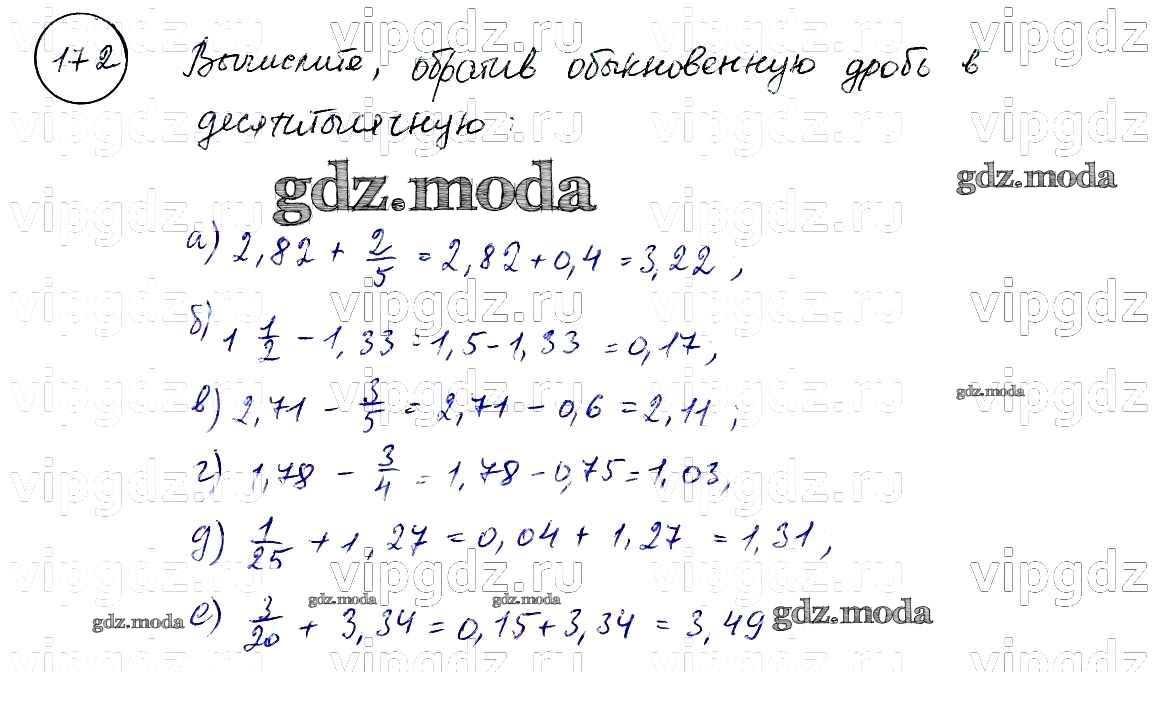 172 Вычислите, обратив обыкновенную дробь в
десятитысячную:
gdz.moda
gdz.moda
а) 2,82 + 2/5 = 2,82 + 0,4 = 3,22,
б) 1 1/2 - 1,33 = 1,5 - 1,33 = 0,17,
в) 2,71 - 3/5 = 2,71 - 0,6 = 2,11;
gdz.moda
г) 1,78 - 3/4 = 1,78 - 0,75 = 1,03,
д) 1/25 + 1,27 = 0,04 + 1,27 = 1,31,
gdz.moda
gdz.moda
gdz.moda
е) 3/20 + 3,34 = 0,15 + 3,34 = 3,49
gdz.moda
vipgdz.ru